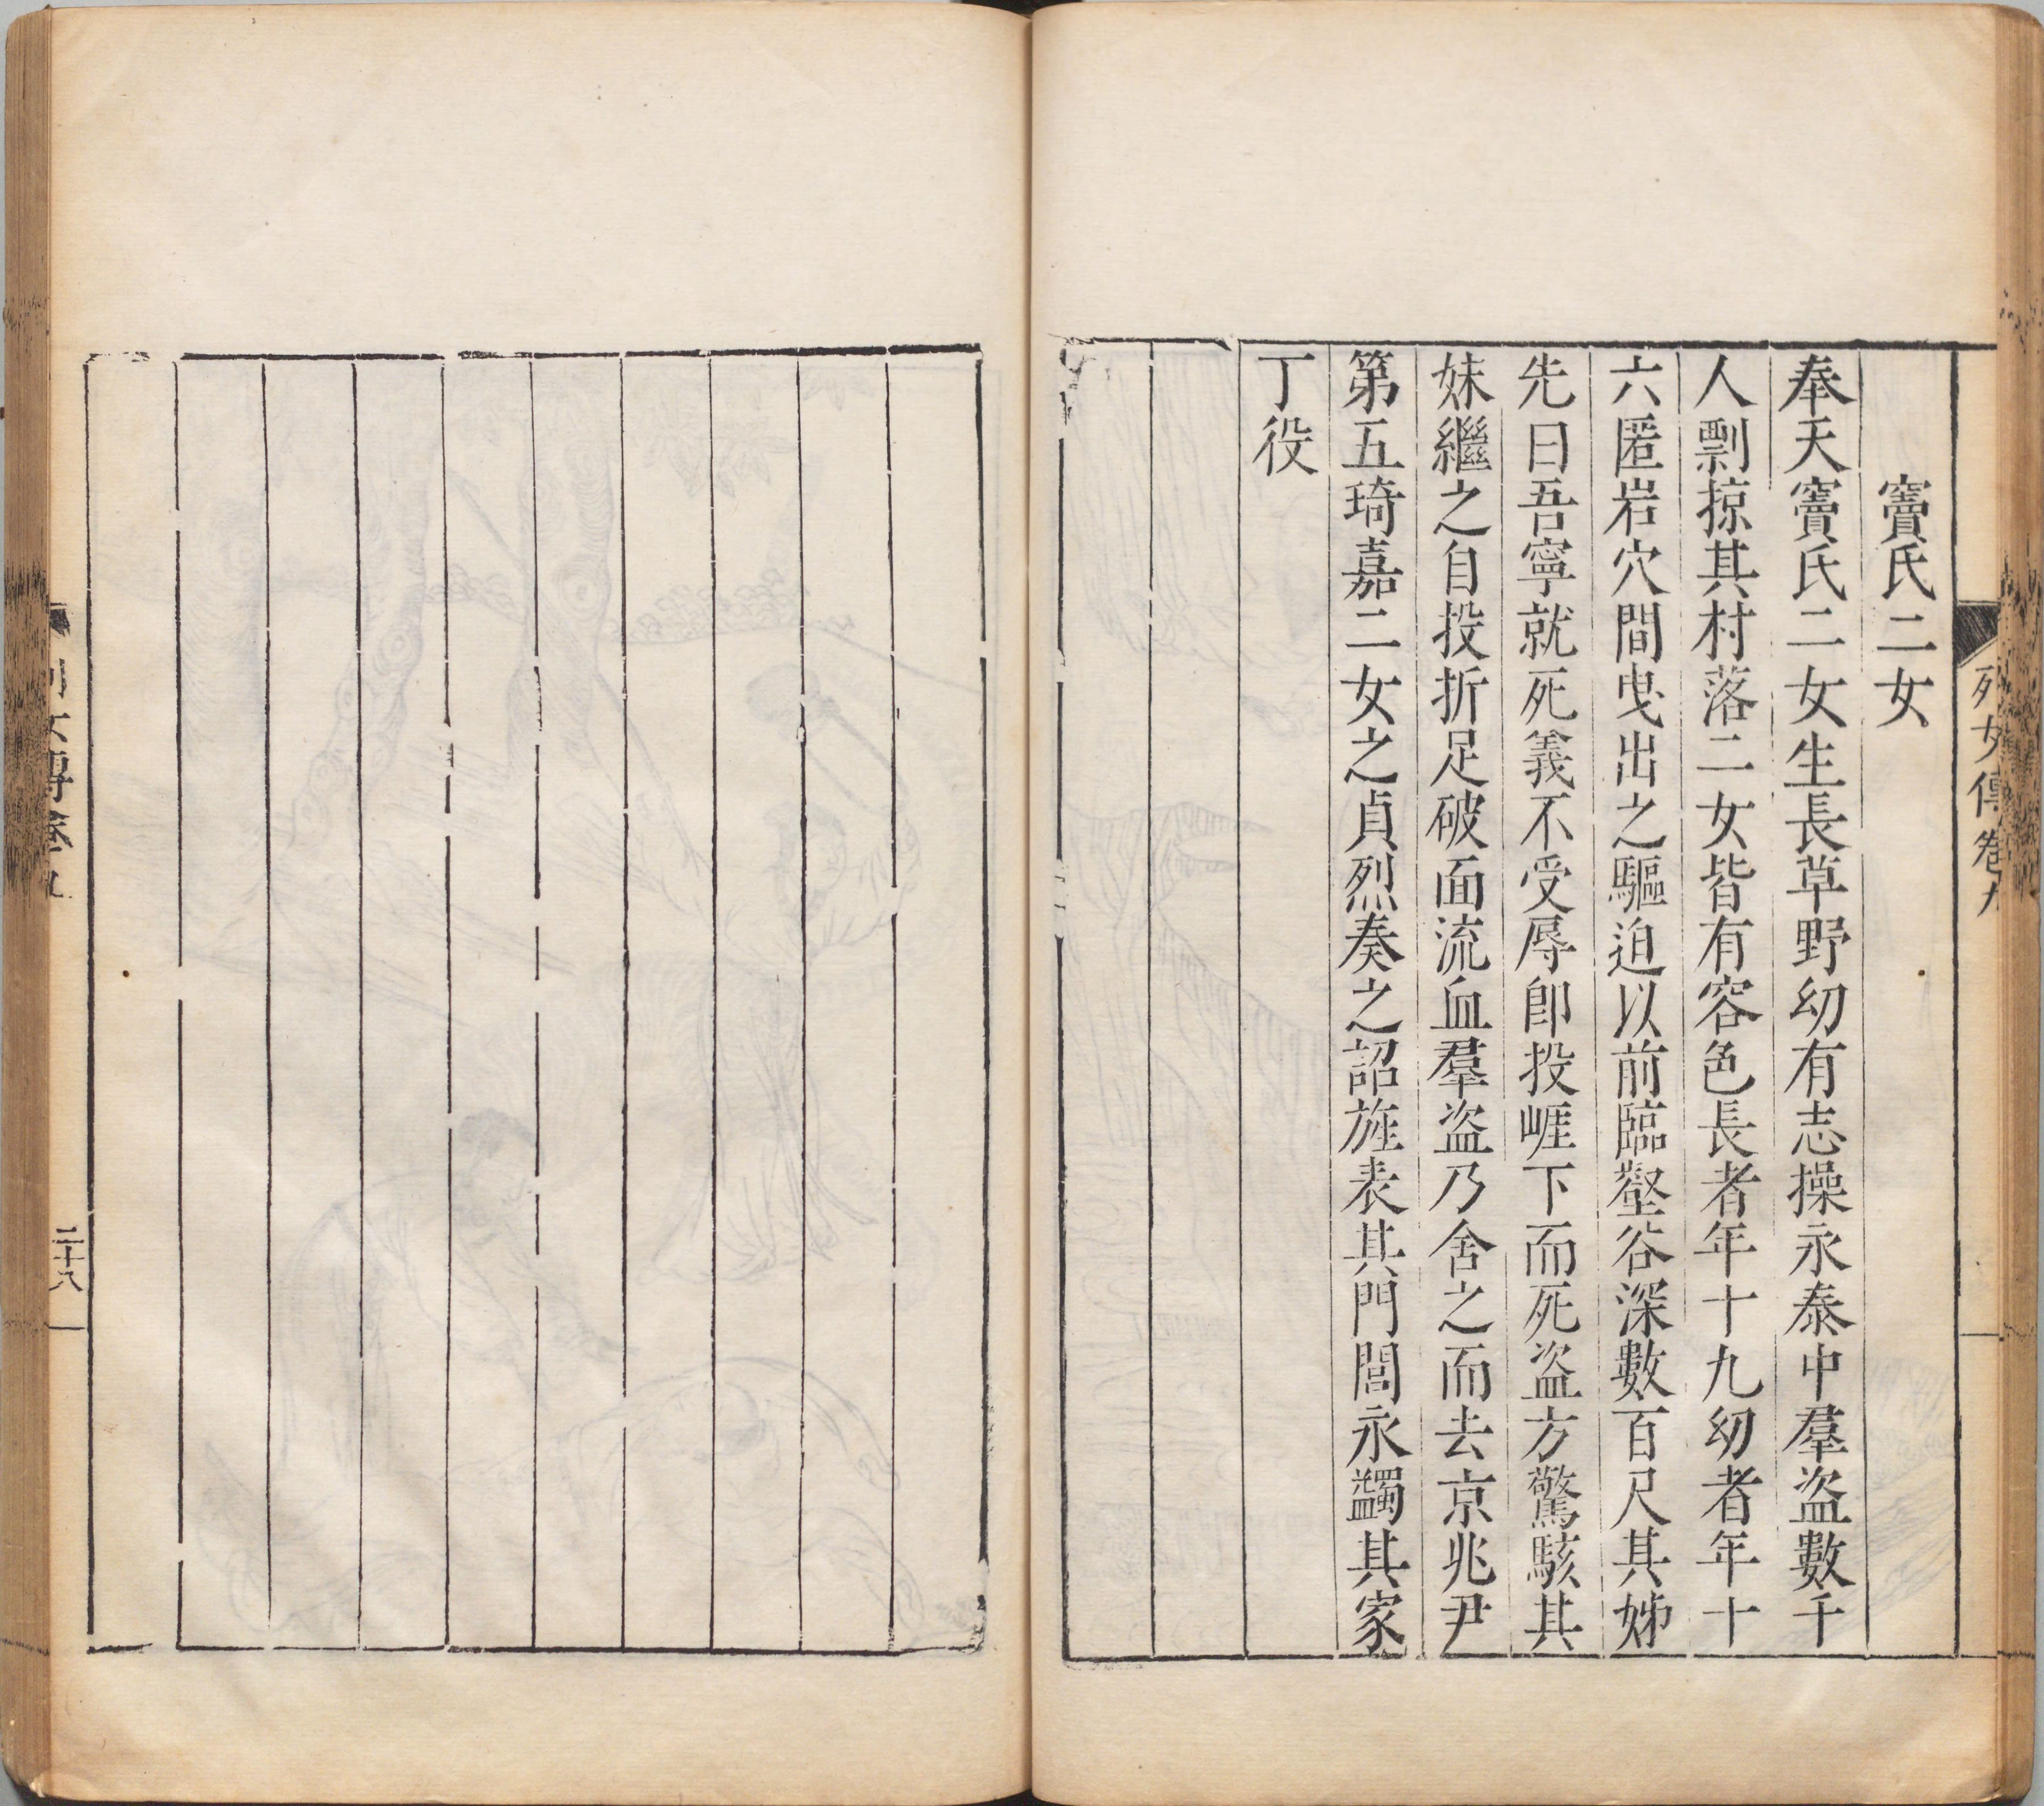 列女傳卷九
竇氏二女
奉天竇氏二女生長草野幼有志操永泰中羣盜數千
人剽掠其村落二女皆有容色長者年十九幼者年十
六匿岩穴間曳出之驅迫以前臨壑谷深數百尺其姊
先曰吾寧就死義不受辱卽投崕下而死盜方驚駭其
妹繼之自投折足破面流血羣盜乃舍之而去京兆尹
第五琦嘉二女之貞烈奏之詔旌表其門閭永蠲其家
丁役
列女傳卷九
二十八